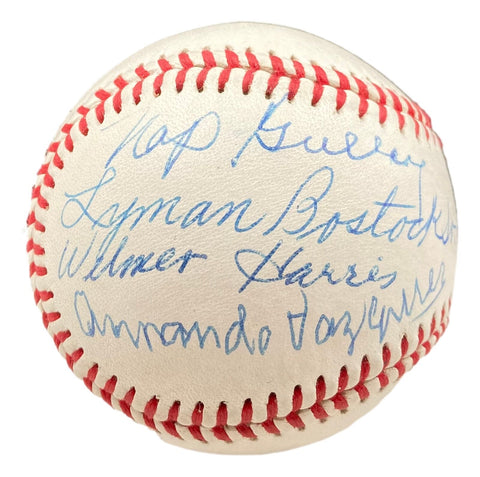 Nap Gulley
Lyman Bostock Sr
Wilmer Harris
Armando Vazquez